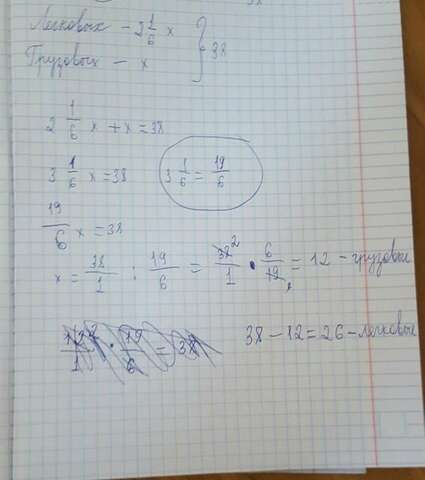 Легковых – 2 1/6 x } 38
Грузовых – x
2 1/6 x + x = 38
3 1/6 x = 38   3 1/6 = 19/6
19/6 x = 38
x = 38/1 : 19/6 = 38²/1 · 6/19₁ = 12 – грузовые
38 – 12 = 26 – легковые